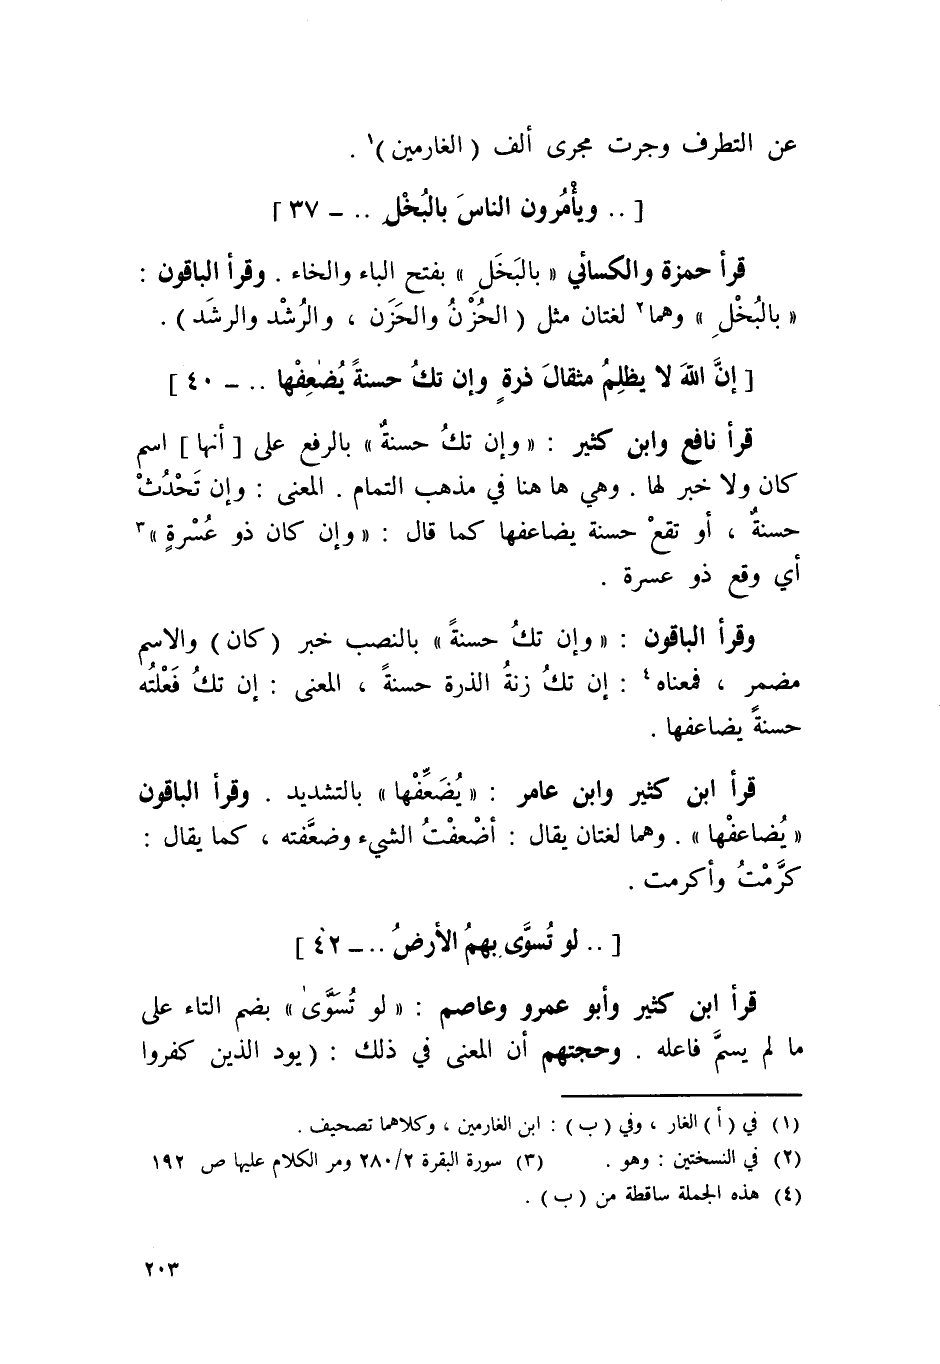 عن التطرف وجرت مجرى ألف ( الغارمين )١ .
[ .. ويأْمُرون الناسَ بالبُخْلِ .. ــ ٣٧ ]
قرأ حمزة والكسائي « بالبَخَلِ » بفتح الباء والخاء . وقرأ الباقون :
« بالبُخْلِ » وهما٢ لغتان مثل ( الحُزْنُ والحَزَن ، والرُشْد والرشَد ) .
[ إنَّ اللهَ لا يظلِمُ مثقالَ ذرةٍ وإن تكُ حسنةً يُضٰعِفْها .. ــ ٤٠ ]
قرأ نافع وابن كثير : « وإن تكُ حسنةٌ » بالرفع على [ أنها ] اسم
كان ولا خبر لها . وهي ها هنا في مذهب التمام . المعنى : وإن تَحْدُثْ
حسنةٌ ، أو تقعْ حسنة يضاعفها كما قال : « وإن كان ذو عُسْرةٍ »٣
أي وقع ذو عسرة .
وقرأ الباقون : « وإن تكُ حسنةً » بالنصب خبر (كان) والاسم
مضمر ، فمعناه٤ : إن تكُ زنةُ الذرة حسنةً ، المعنى : إن تكُ فَعْلتُه
حسنةً يضاعفها .
قرأ ابن كثير وابن عامر : « يُضَعِّفْها » بالتشديد . وقرأ الباقون
« يُضاعفْها » . وهما لغتان يقال : أضْعفْتُ الشيء وضعَّفته ، كما يقال :
كرَّمْتُ وأكرمت .
[ .. لو تُسوَّى بهمُ الأرضُ .. ــ ٤٢ ]
قرأ ابن كثير وأبو عمرو وعاصم : « لو تُسَوَّىٰ » بضم التاء على
ما لم يسمَّ فاعله . وحجتهم أن المعنى في ذلك : ( يود الذين كفروا
(١) في ( أ ) الغار ، وفي ( ب ) : ابن الغارمين ، وكلاهما تصحيف .
(٢) في النسختين : وهو . (٣) سورة البقرة ٢٨٠/٢ ومر الكلام عليها ص ١٩٢
(٤) هذه الجملة ساقطة من ( ب ) .
٢٠٣